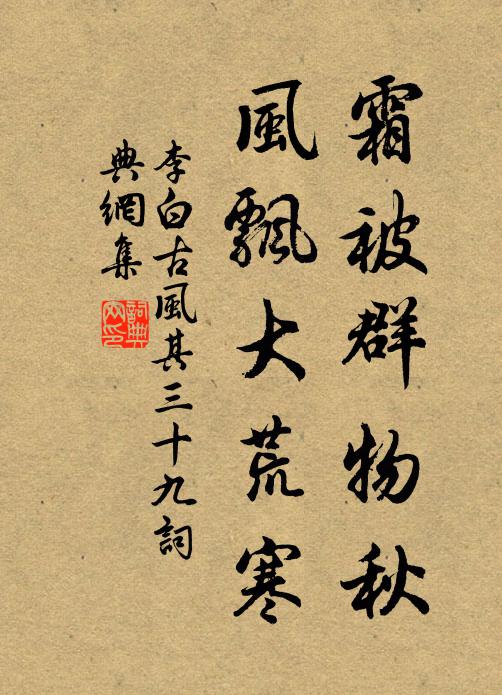 霜被群物秋
風飄大荒寒
李白古風其三十九詞
典網集
詞典网印